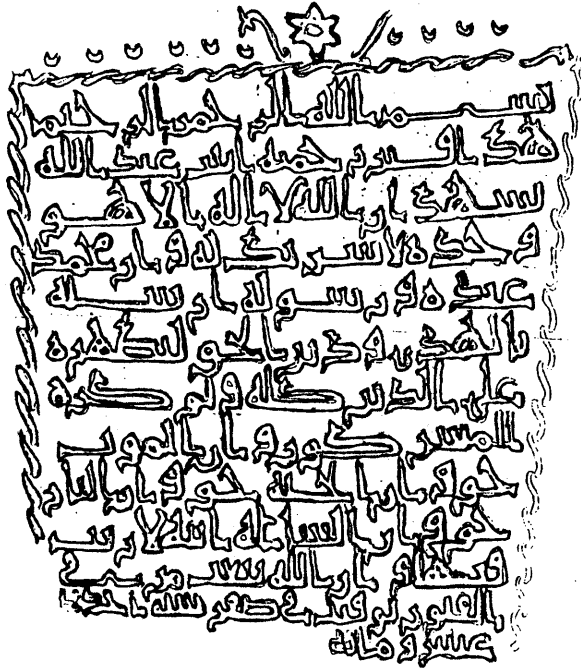 بسم الله الرحمن الرحيم
هذا قبر محمد بن عبد الله
يشهد ان الله لا اله الا هو
وحده لا شريك له وان محمد
عبده ورسوله ارسله
بالهدى ودين الحق ليظهره
على الدين كله ولو كره
المشركون وان الموت
حق وان الجنة حق وان النار
حق وان الساعة اتية لا ريب
فيها وان الله يبعث من في
القبور توفي في صفر سنة احدى
عشر و